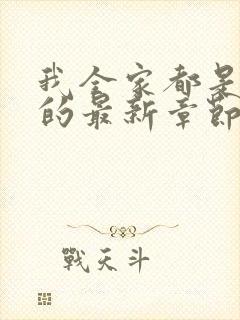 我全家都是
的最新章節
戰天斗